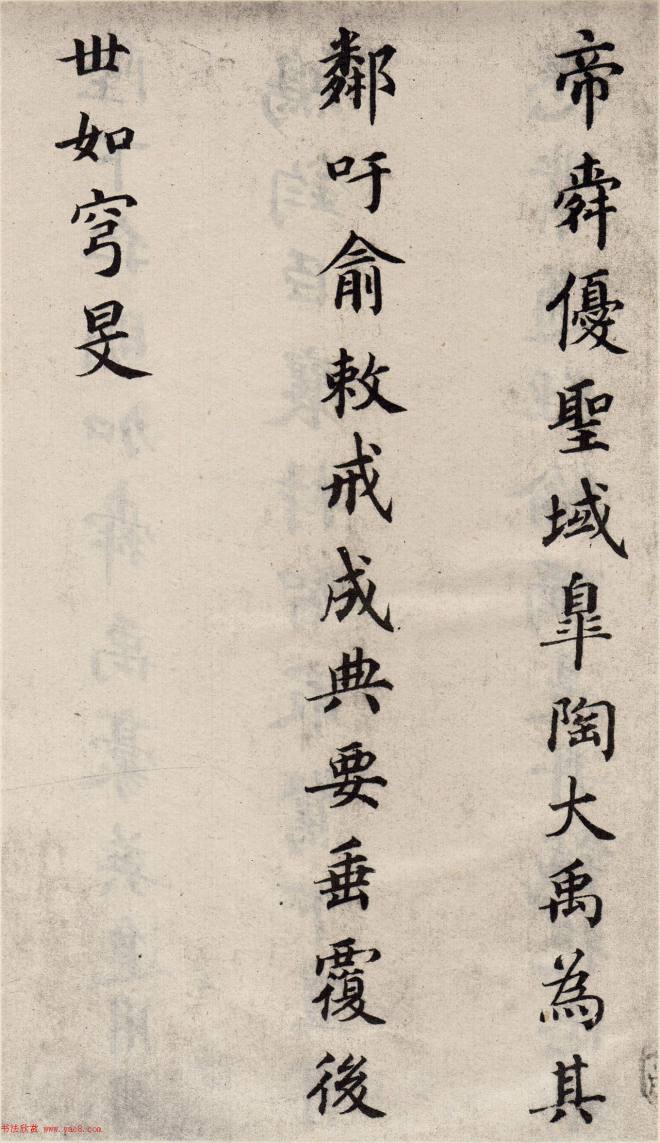 帝舜優聖域皐陶大禹為其
鄰吁俞敕戒成典要垂覆後
世如穹旻
书法欣赏 www.yac8.com